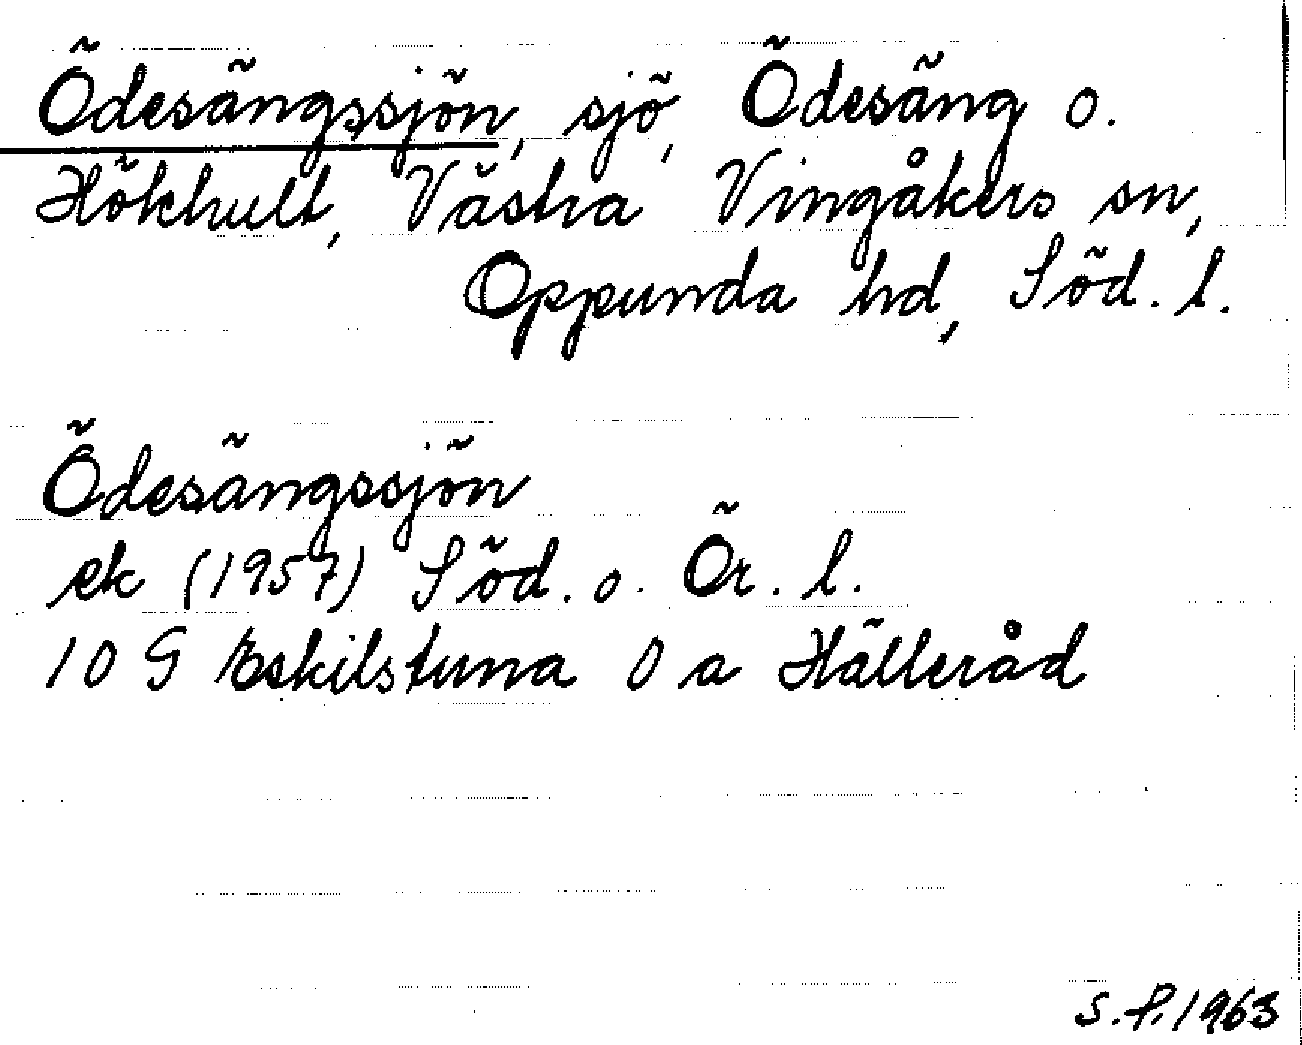 Ödesängssjön, sjö, Ödesäng o.
Hökhult, Västra Vingåkers sn,
Oppunda hd, Söd. l.
Ödesängssjön
ek (1957) Söd. o. Ör. l.
10 G Eskilstuna 0 a Hälleråd
S.P. 1963